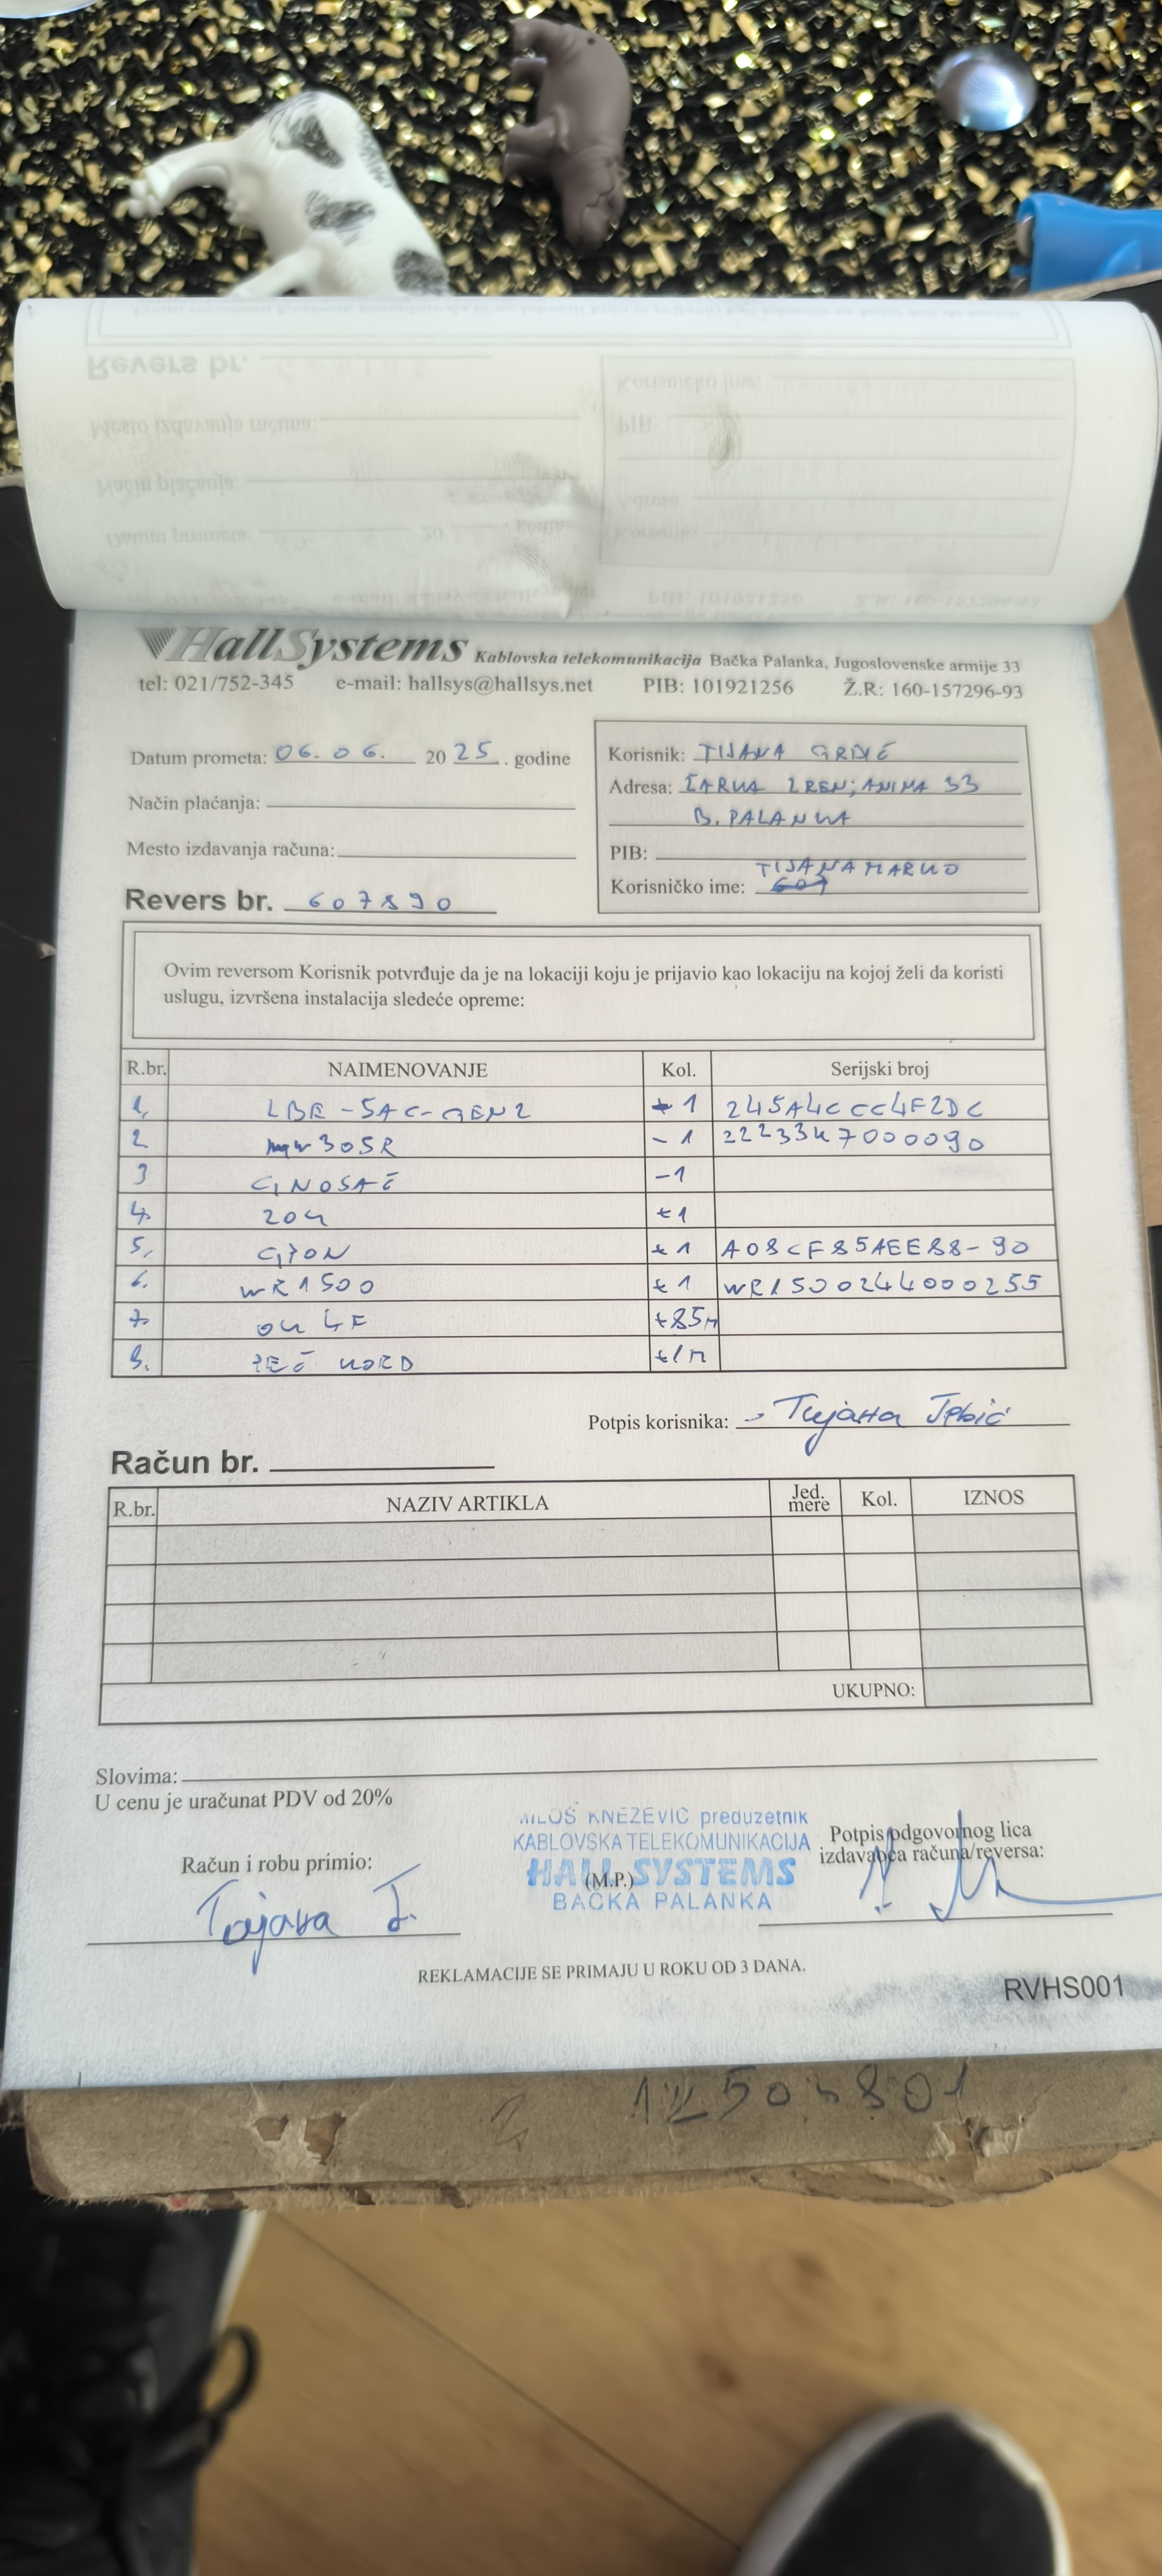 HallSystems Kablovska telekomunikacija Bačka Palanka, Jugoslovenske armije 33
tel: 021/752-345 e-mail: hallsys@hallsys.net PIB: 101921256 Ž.R: 160-157296-93
Datum prometa: 06. 06. 2025. godine
Način plaćanja:
Mesto izdavanja računa:
Revers br. 607890
Korisnik: TIJANA
Adresa: 33
B. PALANKA
PIB:
Korisničko ime: TIJANAMARKO
Ovim reversom Korisnik potvrđuje da je na lokaciji koju je prijavio kao lokaciju na kojoj želi da koristi
uslugu, izvršena instalacija sledeće opreme:
R.br. NAIMENOVANJE Kol. Serijski broj
1. LBE-5AC-GEN2 +1 245A4CCC4F2DC
2 MW305R -1 22233K7000090
3 -1
4. +1
5. GPON +1 A08CF85AEE88-90
6. WR1500 +1 WR1500244000255
7. OK 4F +85M
8. KORD
Potpis korisnika: Tijana
Račun br.
R.br. NAZIV ARTIKLA Jed. mere Kol. IZNOS
UKUPNO:
Slovima:
U cenu je uračunat PDV od 20%
Račun i robu primio:
MILOŠ KNEŽEVIĆ preduzetnik
KABLOVSKA TELEKOMUNIKACIJA
HALL SYSTEMS
(M.P.)
BAČKA PALANKA
Potpis odgovornog lica
izdavaoca računa/reversa:
REKLAMACIJE SE PRIMAJU U ROKU OD 3 DANA.
RVHS001